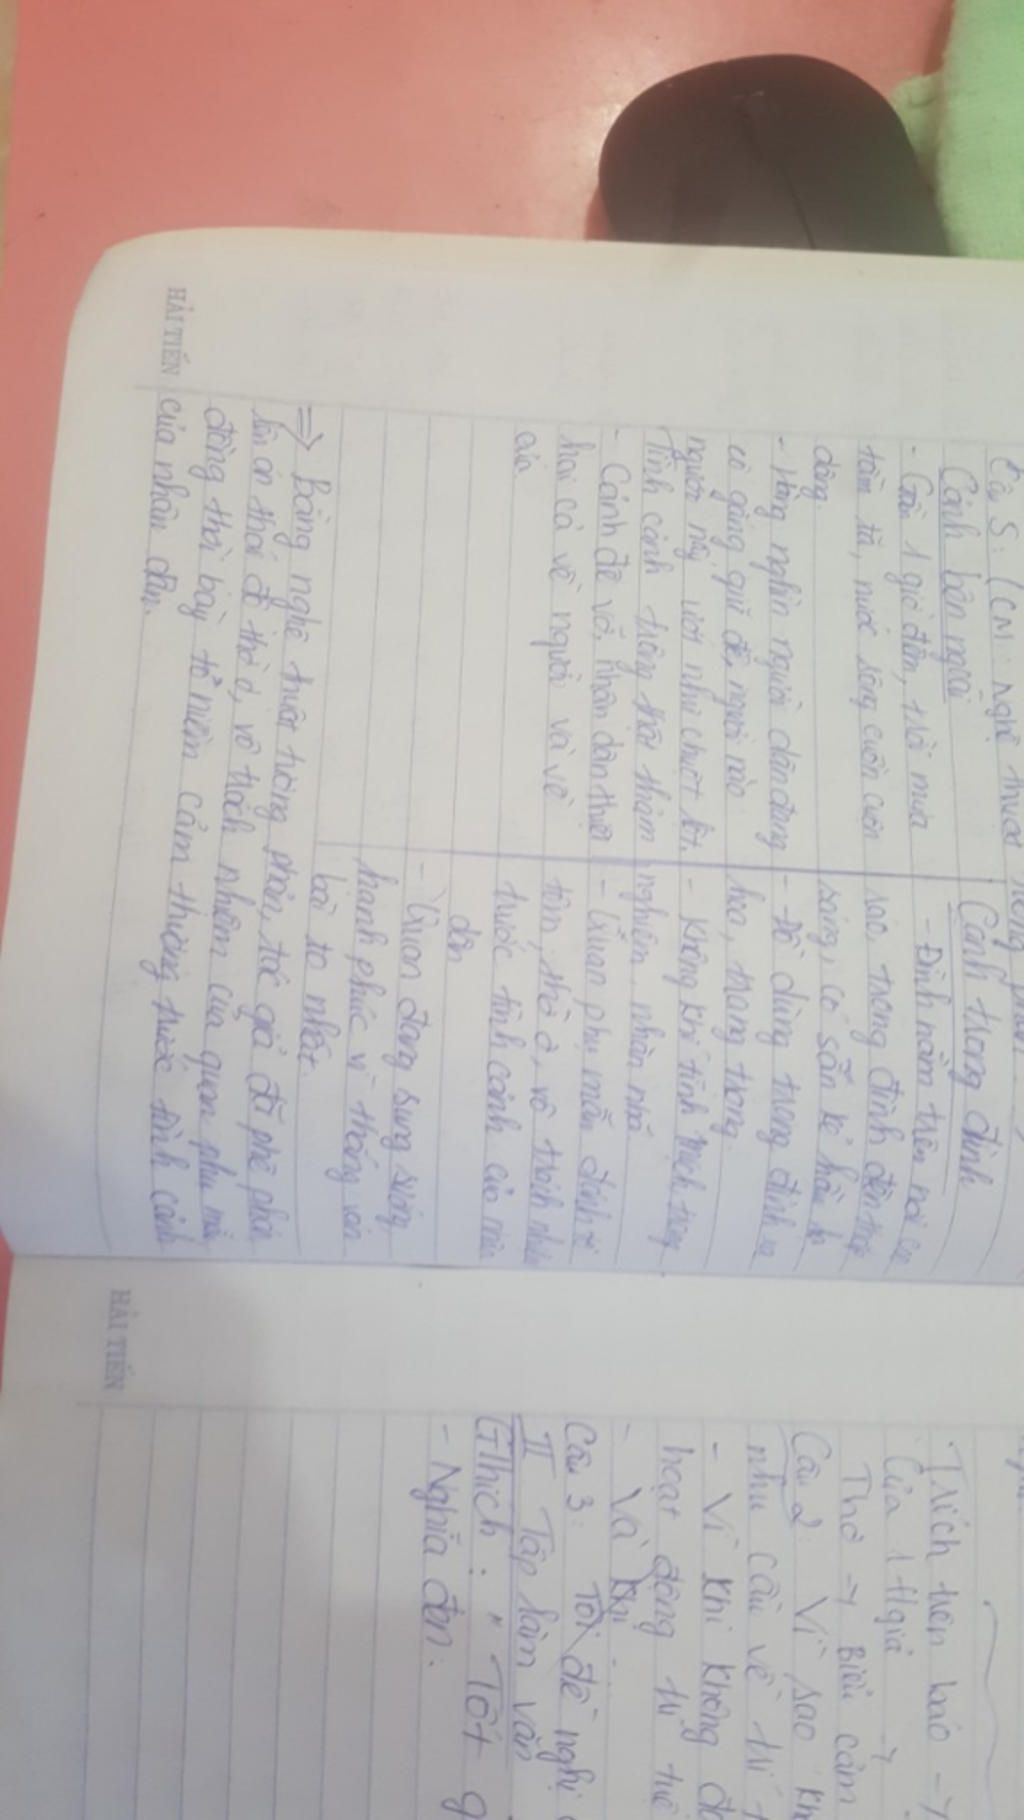 Câu 5: (CM: Nghệ thuật tương phản
Cảnh bên ngoài
- Gần 1 giờ đêm, trời mưa
tầm tã, nước sông cuồn cuộn
dâng.
- Hàng nghìn người dân đang
cố gắng giữ đê, người nào
người nấy ướt như chuột lột.
Tình cảnh trông thật thảm
- Cảnh đê vỡ, nhân dân thiệt
hại cả về người và về
của.
Cảnh trong đình
- Đình nằm trên nơi cao
ráo, trong đình đèn thắp
sáng, có sẵn kẻ hầu hạ
- Đồ dùng trong đình xa
hoa, trang trọng
- Không khí tĩnh mịch, trang
nghiêm, nhàn nhã
- Quan phụ mẫu đánh tổ
tôm, thờ ơ, vô trách nhiệm
trước tình cảnh của nhân
dân
- Quan đang sung sướng
hạnh phúc vì thắng ván
bài to nhất.
=> Bằng nghệ thuật tương phản, tác giả đã phê phán
lên án thái độ thờ ơ, vô trách nhiệm của quan phụ mẫu
đồng thời bày tỏ niềm cảm thương trước tình cảnh
của nhân dân.
HẢI TIẾN
Trích trên báo ->
Của 1 tgiả ->
Thơ -> Biểu cảm
Câu 2 Vì sao kh
nhu cầu về trí t
- Vì khi không đ
hoạt động trí tuệ
- Và khi
Câu 3: Tôi đề nghị
II Tập làm văn
Gthích: " Tốt g
- Nghĩa đen:
HẢI TIẾN